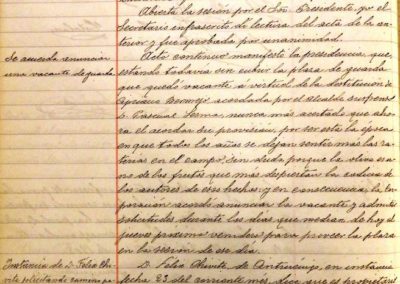 Abierta la sesión por el Sor. Presidente, yo el
Secretario infrascrito di lectura del acta de la an-
terior y fue aprobada por unanimidad.
Se acuerda anunciar
una vacante de guarda
Acto continuo manifestó la presidencia, que
estando todavia sin cubrir la plaza de guarda
que quedó vacante á virtud de la destitución de
acordada por el alcalde
D. Pascual nunca más acertado que aho-
ra el acordar su provisión, por ser esta la época
en que todos los años se dejan sentir más las ra-
terias en el campo, sin duda porque la oliva es u-
no de los frutos que más despiertan la codicia de
los autores de esos hechos; y en consecuencia, la cor-
poración acordó anunciar la vacante y admitir
solicitudes durante los días que median de hoy al
jueves próximo venidero para proveer la plaza
en la sesión de ese día.
Instancia de D. Felix Chi-
vite solicitando
D. Felix Chivite, de Cintruénigo, en instancia
fecha 23 del corriente mes, dice que es propietario